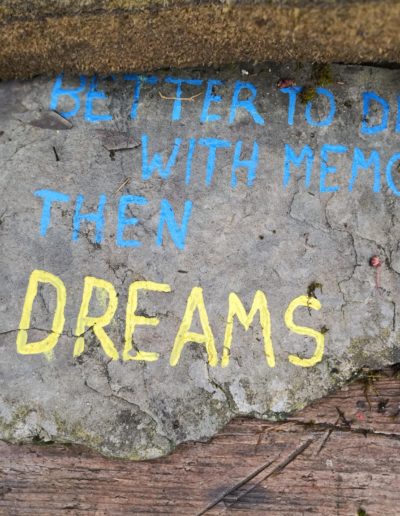 BETTER TO D
WITH MEMO
THEN
DREAMS